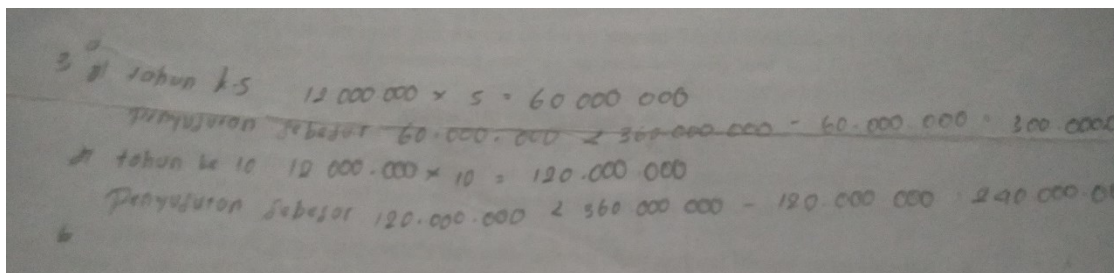 3 a) tahun k-5 12 000 000 × 5 = 60 000 000
Penyusutan sebesar 60.000.000 < 360 000 000 - 60.000 000 = 300.0000
tahun ke 10 12 000.000 × 10 = 120.000 000
Penyusutan sebesar 120.000.000 < 360 000 000 - 120 000 000 240 000.0